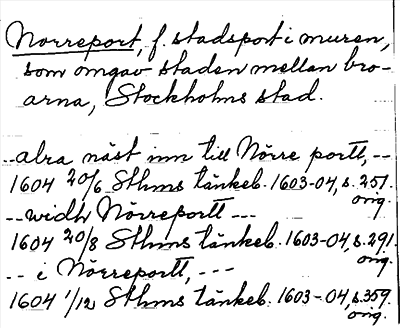 Norreport, f. stadsport i muren,
som omgav staden mellan bro-
arna, Stockholms stad.
--alra näst inn till Nörre portt,--
1604 20/6 Sthms tänkeb. 1603-04, s. 257.
orig.
--widh Nörreportt---
1604 20/8 Sthms tänkeb. 1603-04, s. 291.
orig.
-- i Nörreportt,---
1604 1/12 Sthms tänkeb. 1603-04, s. 359.
orig.